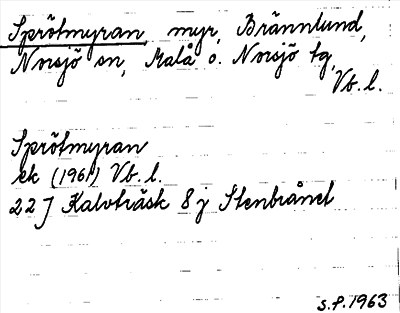 Sprötmyran, myr, Brännlund,
Norsjö sn, Malå o. Norsjö tg,
Vb. l.
Sprötmyran
ek (1961) Vb. l.
22J Kalvträsk 8 j Stenbrånet
S.P. 1963